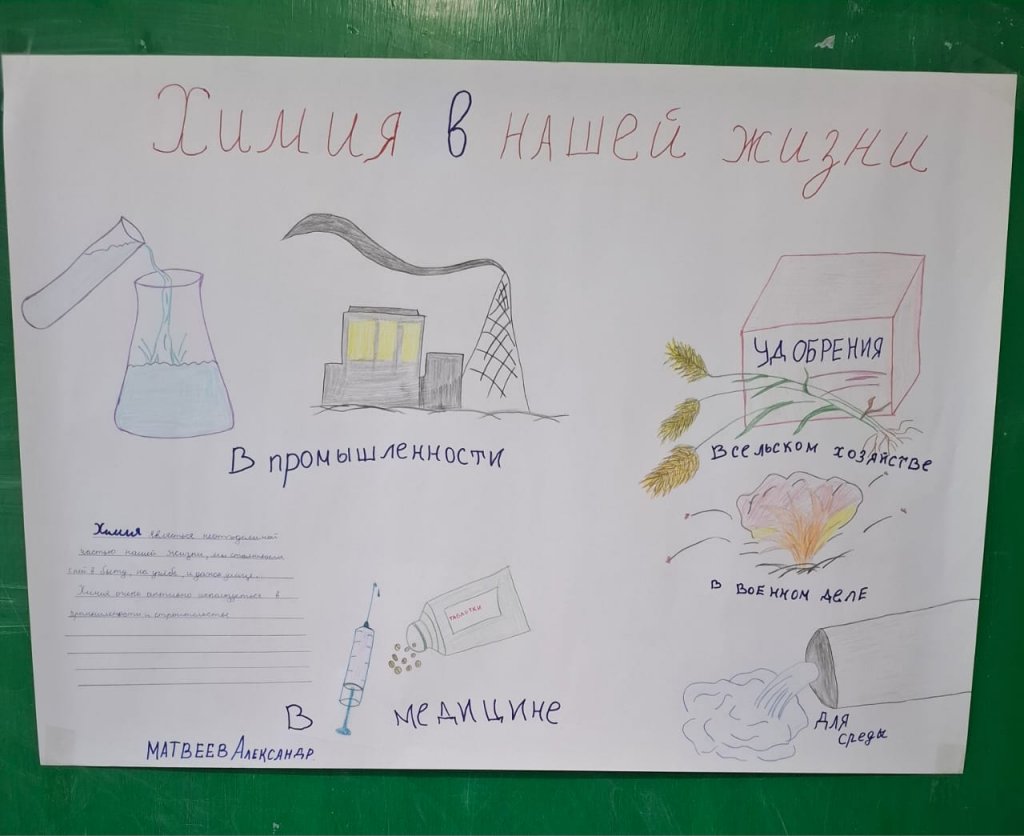 Химия в нашей жизни
УДОБРЕНИЯ
В промышленности
В сельском хозяйстве
Химия являеться неотъемлимой
частью нашей жизни, мы
с ней в быту, на учебе, и даже улице.
Химия очень активно используеться в
промышленности и
ТАБЛЕТКИ
В военном деле
В медицине
Для
среды
МАТВЕЕВ Александр